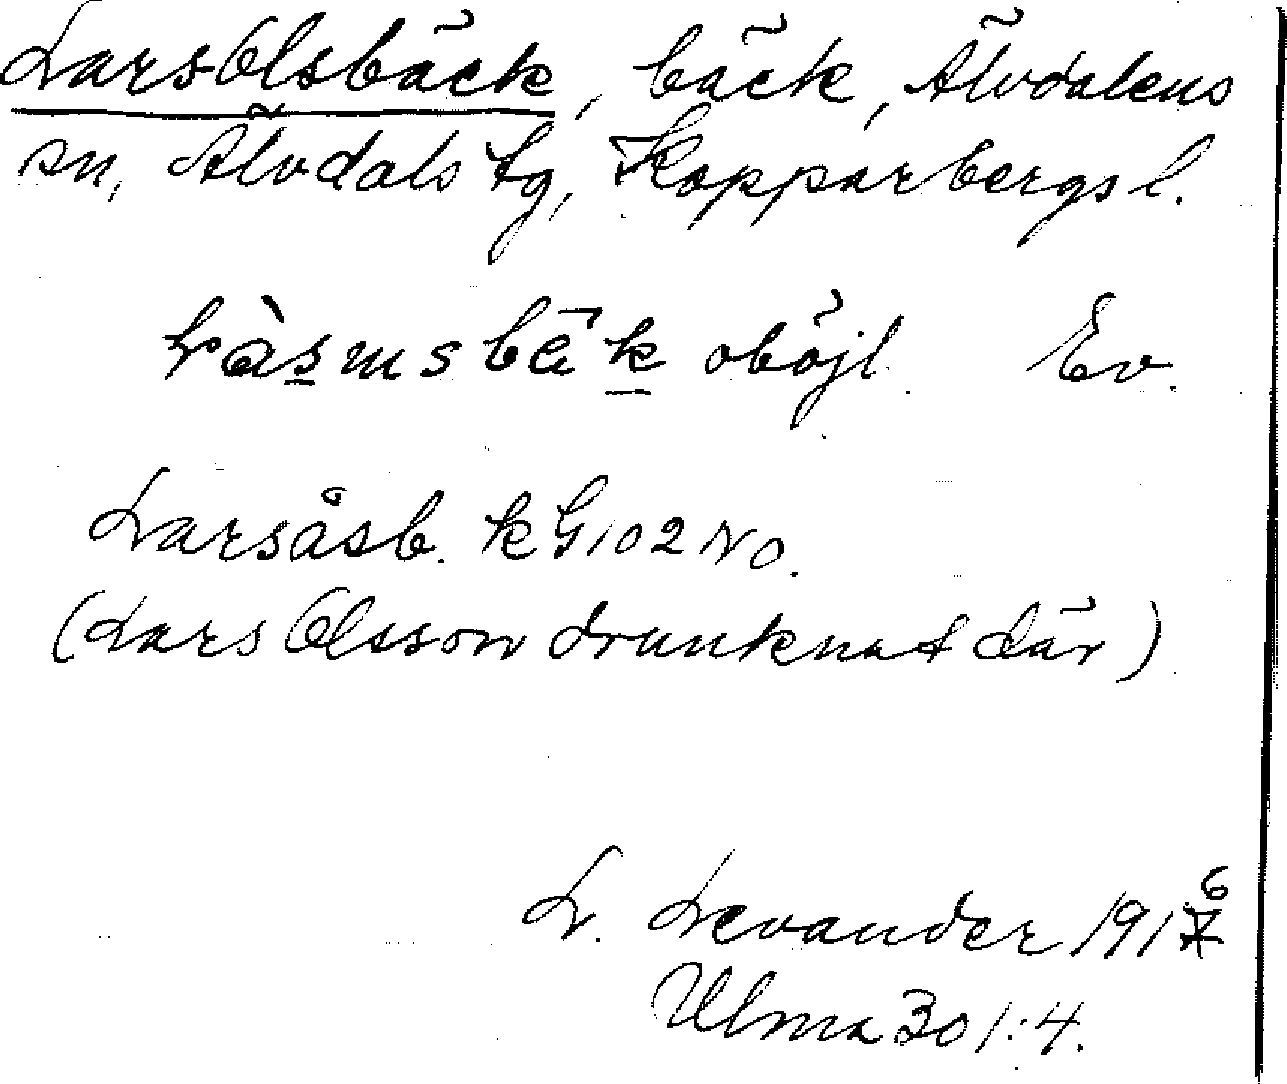 LarsOlsbäck, bäck, Älvdalens
sn, Älvdals tg, Kopparbergs l.
oböjl. Ev.
Larsåsb. k G 102 NO.
(Lars Olsson drunknat där)
L. Levander 1916
Ulma 301:4.